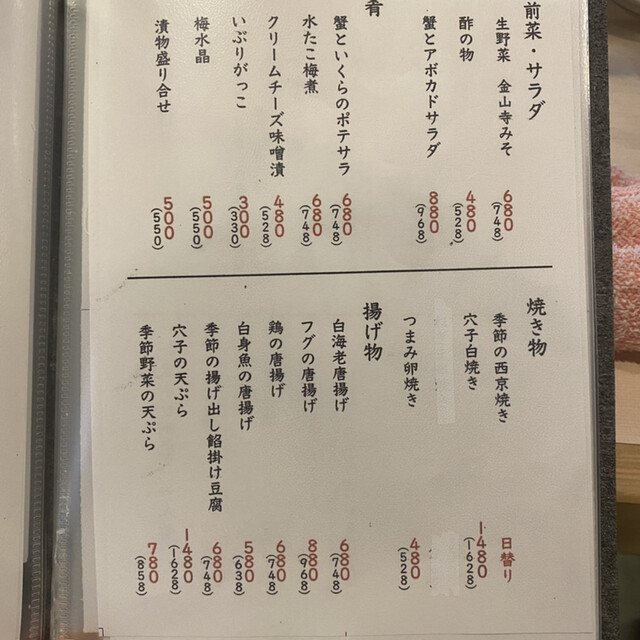 前菜・サラダ
生野菜　金山寺みそ 680 (748)
酢の物 480 (528)
蟹とアボカドサラダ 880 (968)
肴
蟹といくらのポテサラ 680 (748)
水たこ梅煮 680 (748)
クリームチーズ味噌漬 480 (528)
いぶりがっこ 300 (330)
梅水晶 500 (550)
漬物盛り合せ 500 (550)
焼き物
季節の西京焼き 日替り
穴子白焼き 1480 (1628)
つまみ卵焼き 480 (528)
揚げ物
白海老唐揚げ 680 (748)
フグの唐揚げ 880 (968)
鶏の唐揚げ 680 (748)
白身魚の唐揚げ 580 (638)
季節の揚げ出し餡掛け豆腐 680 (748)
穴子の天ぷら 1480 (1628)
季節野菜の天ぷら 780 (858)